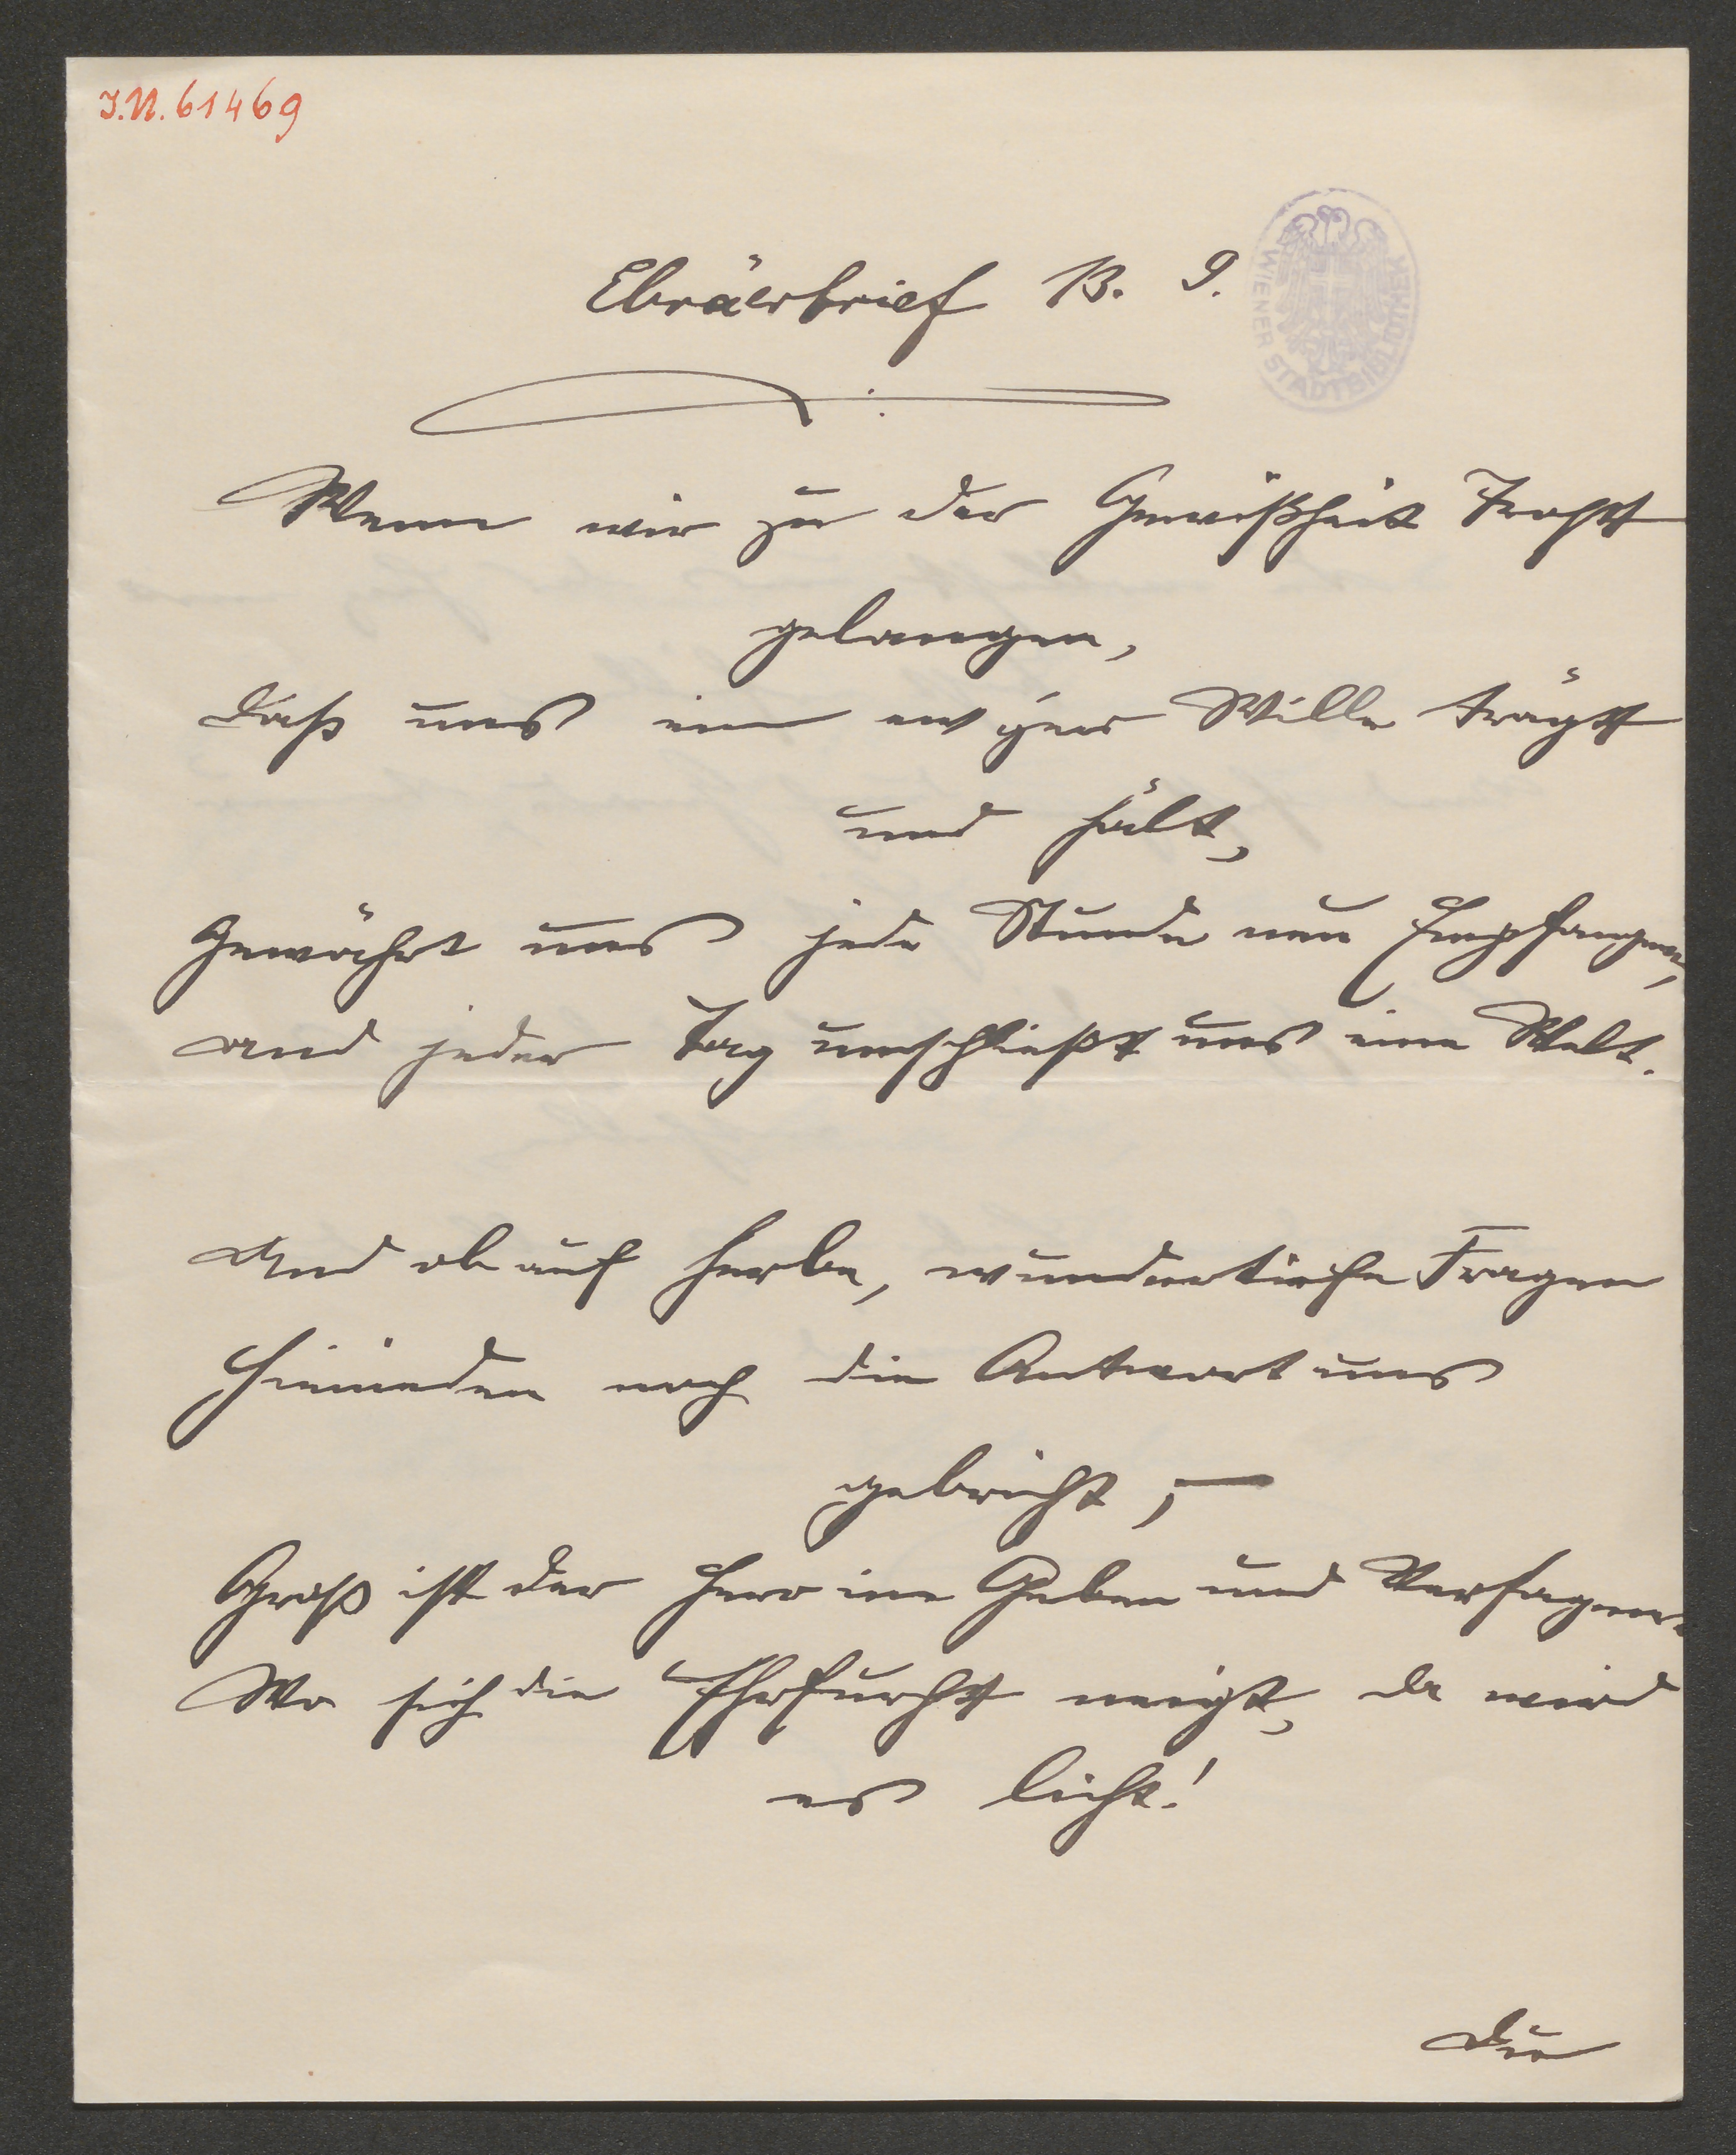 J.N. 61469
Ebräerbrief 13. 9.
WIENER STADTBIBLIOTHEK
Wenn wir zu der Gewißheit Trost
gelangen,
Daß uns ein ew'ger Wille trägt
und hält,
Gewährt uns jede Stunde neu Empfangen,
Und jeder Tag umschließt uns eine Welt.
Und ob auf herbe, wundertiefe Fragen
Hienieden noch die Antwort uns
gebricht, —
Groß ist der Herr im Geben und Versagen.
Wo sich die Ehrfurcht neigt, da wird
es licht!
Die